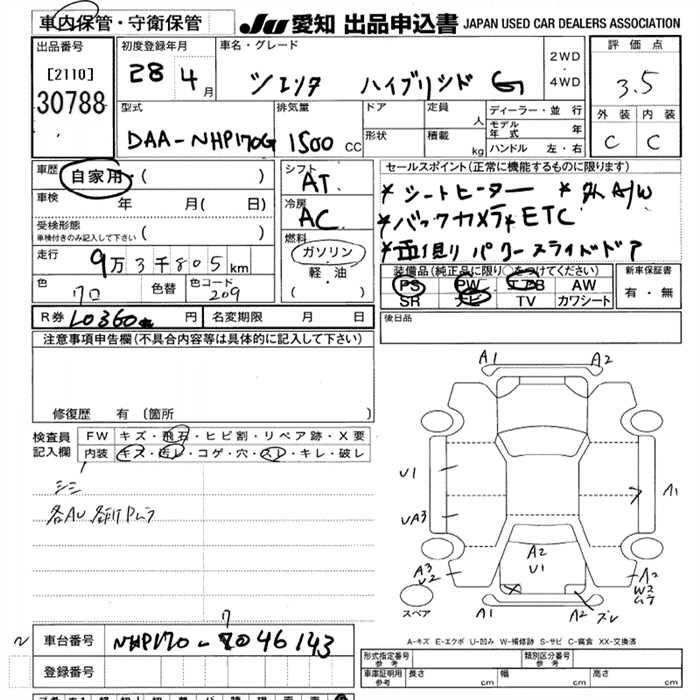 車内保管・守衛保管
JU 愛知 出品申込書 JAPAN USED CAR DEALERS ASSOCIATION
出品番号
[2110]
30788
初度登録年月
28 4月
車名・グレード
シエンタ ハイブリッド G
2WD
・
4WD
評価点
3.5
外装 内装
C C
型式
DAA-NHP170G
排気量
1500 CC
ドア
形状
定員
人
積載
kg
ディーラー・並行
モデル年式 年
ハンドル 左・右
車歴
自家用・( )
車検 年 月( 日)
受検形態
車検付きのみ記入して下さい ( )
走行
9万3千805km
色
クロ
色替
色コード
209
シフト
AT
冷房
AC
燃料
ガソリン
・
軽・油
( )
セールスポイント(正常に機能するものに限ります)
*シートヒーター *外A/W
*バックカメラ*ETC
*両側パワースライドドア
装備品(純正品に限り○をつけてください)
PS PW エアB AW
SR ナビ TV カワシート
新車保証書
有・無
R券 10360 円
名変期限 月 日
後日品
注意事項申告欄(不具合内容等は具体的に記入して下さい)
修復歴 有 〔箇所 〕
検査員記入欄
FW キズ・飛石・ヒビ割・リペア跡・X要
内装 キズ・汚レ・コゲ・穴・スレ・キレ・破レ
シミ
各AU
A1 A2
U1
UA3
A1
A2
U1
A3
U2
A2
W2
A1 A2 ズレ
スペア
A-キズ E-エクボ U-凹み W-補修跡 S-サビ C-腐食 XX-交換済
車台番号
NHP170-7046143
登録番号
形式指定番号
参考
類別区分番号
参考
車庫証明用
参考
長さ cm 幅 cm 高さ cm